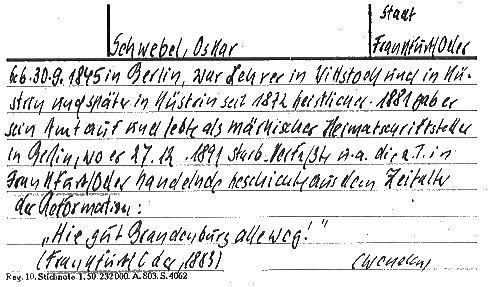 Stadt
Schwebel, Oskar Frankfurt/Oder
Geb. 30.9.1845 in Berlin, war Lehrer in Wittstock und in Kü-
strin und später in Küstrin seit 1872 Geistlicher. 1881 gab er
sein Amt auf und lebte als märkischer Heimatschriftsteller
in Berlin, wo er 27.12.1891 starb. Verfaßte u.a. die z.T. in
Frankfurt/Oder handelnde Geschichte aus dem Zeitalter
der Reformation:
„Hie gut Brandenburg alleweg!"
(Frankfurt/Oder, 1883)
Reg. 10. Stichnote 1. 50 232000. A. 803. S. 4062